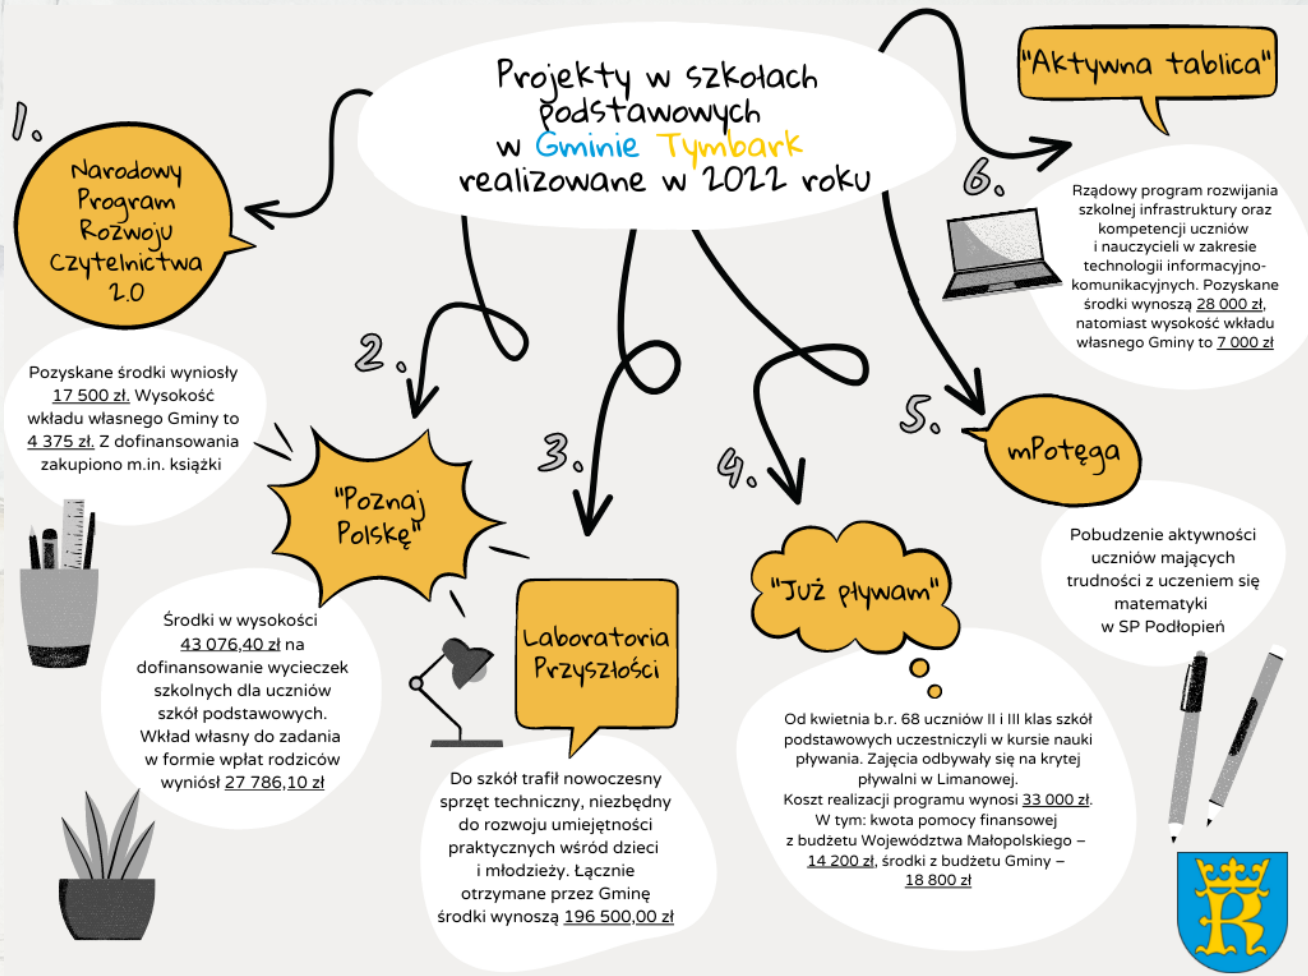 Projekty w szkołach
podstawowych
w Gminie Tymbark
realizowane w 2022 roku
1.
Narodowy
Program
Rozwoju
Czytelnictwa
2.0
Pozyskane środki wyniosły
17 500 zł. Wysokość
wkładu własnego Gminy to
4 375 zł. Z dofinansowania
zakupiono m.in. książki
2.
"Poznaj
Polskę"
Środki w wysokości
43 076,40 zł na
dofinansowanie wycieczek
szkolnych dla uczniów
szkół podstawowych.
Wkład własny do zadania
w formie wpłat rodziców
wyniósł 27 786,10 zł
3.
Laboratoria
Przyszłości
Do szkół trafił nowoczesny
sprzęt techniczny, niezbędny
do rozwoju umiejętności
praktycznych wśród dzieci
i młodzieży. Łącznie
otrzymane przez Gminę
środki wynoszą 196 500,00 zł
4.
"Już pływam"
Od kwietnia b.r. 68 uczniów II i III klas szkół
podstawowych uczestniczyli w kursie nauki
pływania. Zajęcia odbywały się na krytej
pływalni w Limanowej.
Koszt realizacji programu wynosi 33 000 zł.
W tym: kwota pomocy finansowej
z budżetu Województwa Małopolskiego –
14 200 zł, środki z budżetu Gminy –
18 800 zł
5.
mPotęga
Pobudzenie aktywności
uczniów mających
trudności z uczeniem się
matematyki
w SP Podłopień
6.
"Aktywna tablica"
Rządowy program rozwijania
szkolnej infrastruktury oraz
kompetencji uczniów
i nauczycieli w zakresie
technologii informacyjno-
komunikacyjnych. Pozyskane
środki wynoszą 28 000 zł,
natomiast wysokość wkładu
własnego Gminy to 7 000 zł
R